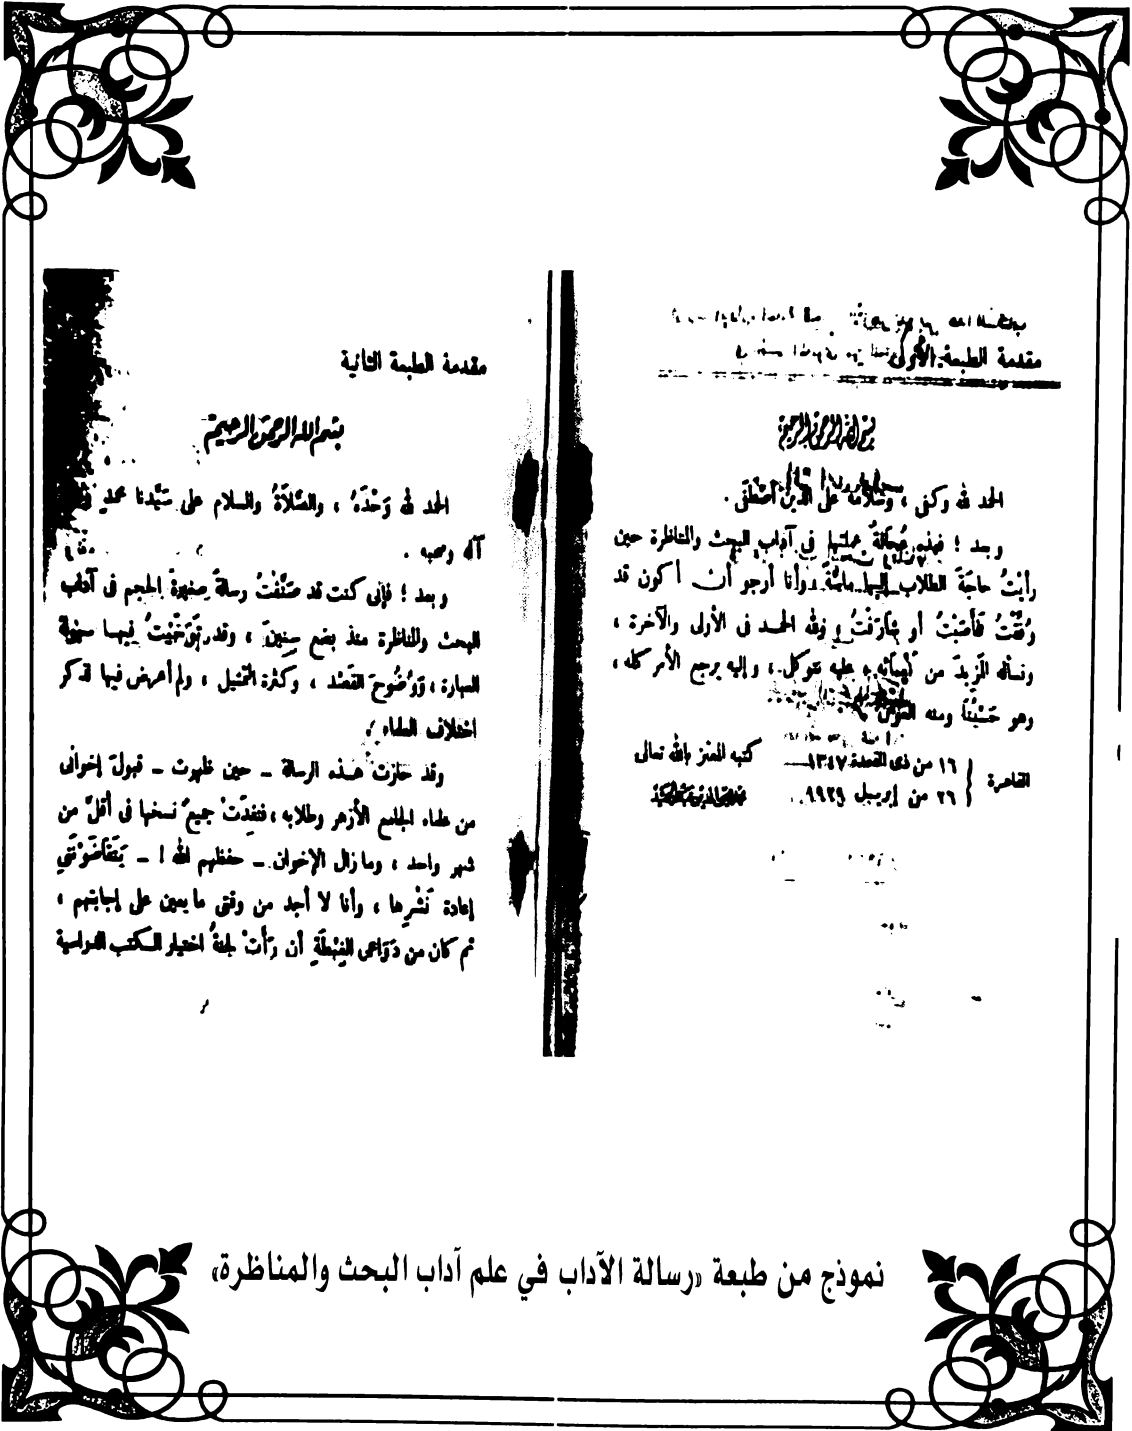 مقدمة الطبعة الأولى
بسم الله الرحمن الرحيم
الحمد لله وكفى ، وسلامه على الذين اصْطَفَى .
وبعد ؛ فهذه عُجَالةٌ عملتها في آداب البحث والمناظرة حين
رأيْتُ حاجَةَ الطلاب إليها ماسَّةً وأنا أرجو أن أكون قد
وُفِّقْتُ فَأَصَبْتُ أو شَارَفْتُ ولله الحمد فى الأولى والآخرة ،
ونسأله المَزِيدَ من إلهاماته عليه نتوكل ، وإليه يرجع الأمر كله ،
وهو حَسْبُنَا ومنه العون
القاهرة
١٦ من ذى القعدة ١٣٤٧
٢٦ من إبريل ١٩٢٩
كتبه المعتز بالله تعالى
محمد محيى الدين عبد الحميد
مقدمة الطبعة الثانية
بسم الله الرحمن الرحيم
الحمد لله وَحْدَهُ ، والصَّلاَةُ والسلام على سَيِّدنا محمدٍ
آله وصحبه .
وبعد ؛ فإنى كنت قد صَنَّفْتُ رسالةً صغيرةَ الحجم فى آداب
البحث والمناظرة منذ بضع سِنِينَ ، وقد تَوَخَّيْتُ فيها سهولة
العبارة ، وَوُضُوحَ القَصْد ، وكثرة التمثيل ، ولم أعرض فيها لذكر
اختلاف العلماء .
وقد حازت هذه الرسالة – حين ظهرت – قبولَ إخوانى
من علماء الجامع الأزهر وطلابه ، فنفِدَتْ جميعُ نسخها فى أقلَّ من
شهر واحد ، وما زال الإخوان – حفظهم الله ! – يَتَقَاضَوْنَنِي
إعادة نَشْرِها ، وأنا لا أجد من وقتى ما يعين على إجابتهم ،
ثم كان من دَوَاعى الغِبْطَةِ أن رَأَتْ لجنةُ اختيار الكتب الدراسية
نموذج من طبعة «رسالة الآداب في علم آداب البحث والمناظرة»